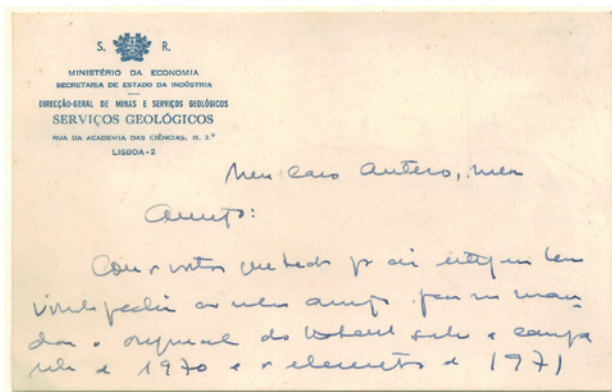 S. R.
MINISTÉRIO DA ECONOMIA
SECRETARIA DE ESTADO DA INDÚSTRIA
DIRECÇÃO-GERAL DE MINAS E SERVIÇOS GEOLÓGICOS
SERVIÇOS GEOLÓGICOS
RUA DA ACADEMIA DAS CIÊNCIAS, 19, 2.º
LISBOA-2
Meu Caro Antero, meu
Amigo:
Com votos que tudo por aí
pedir ao meu amigo para me man-
dar o original do sobre a campa
nha de 1970 e os elementos de 1971